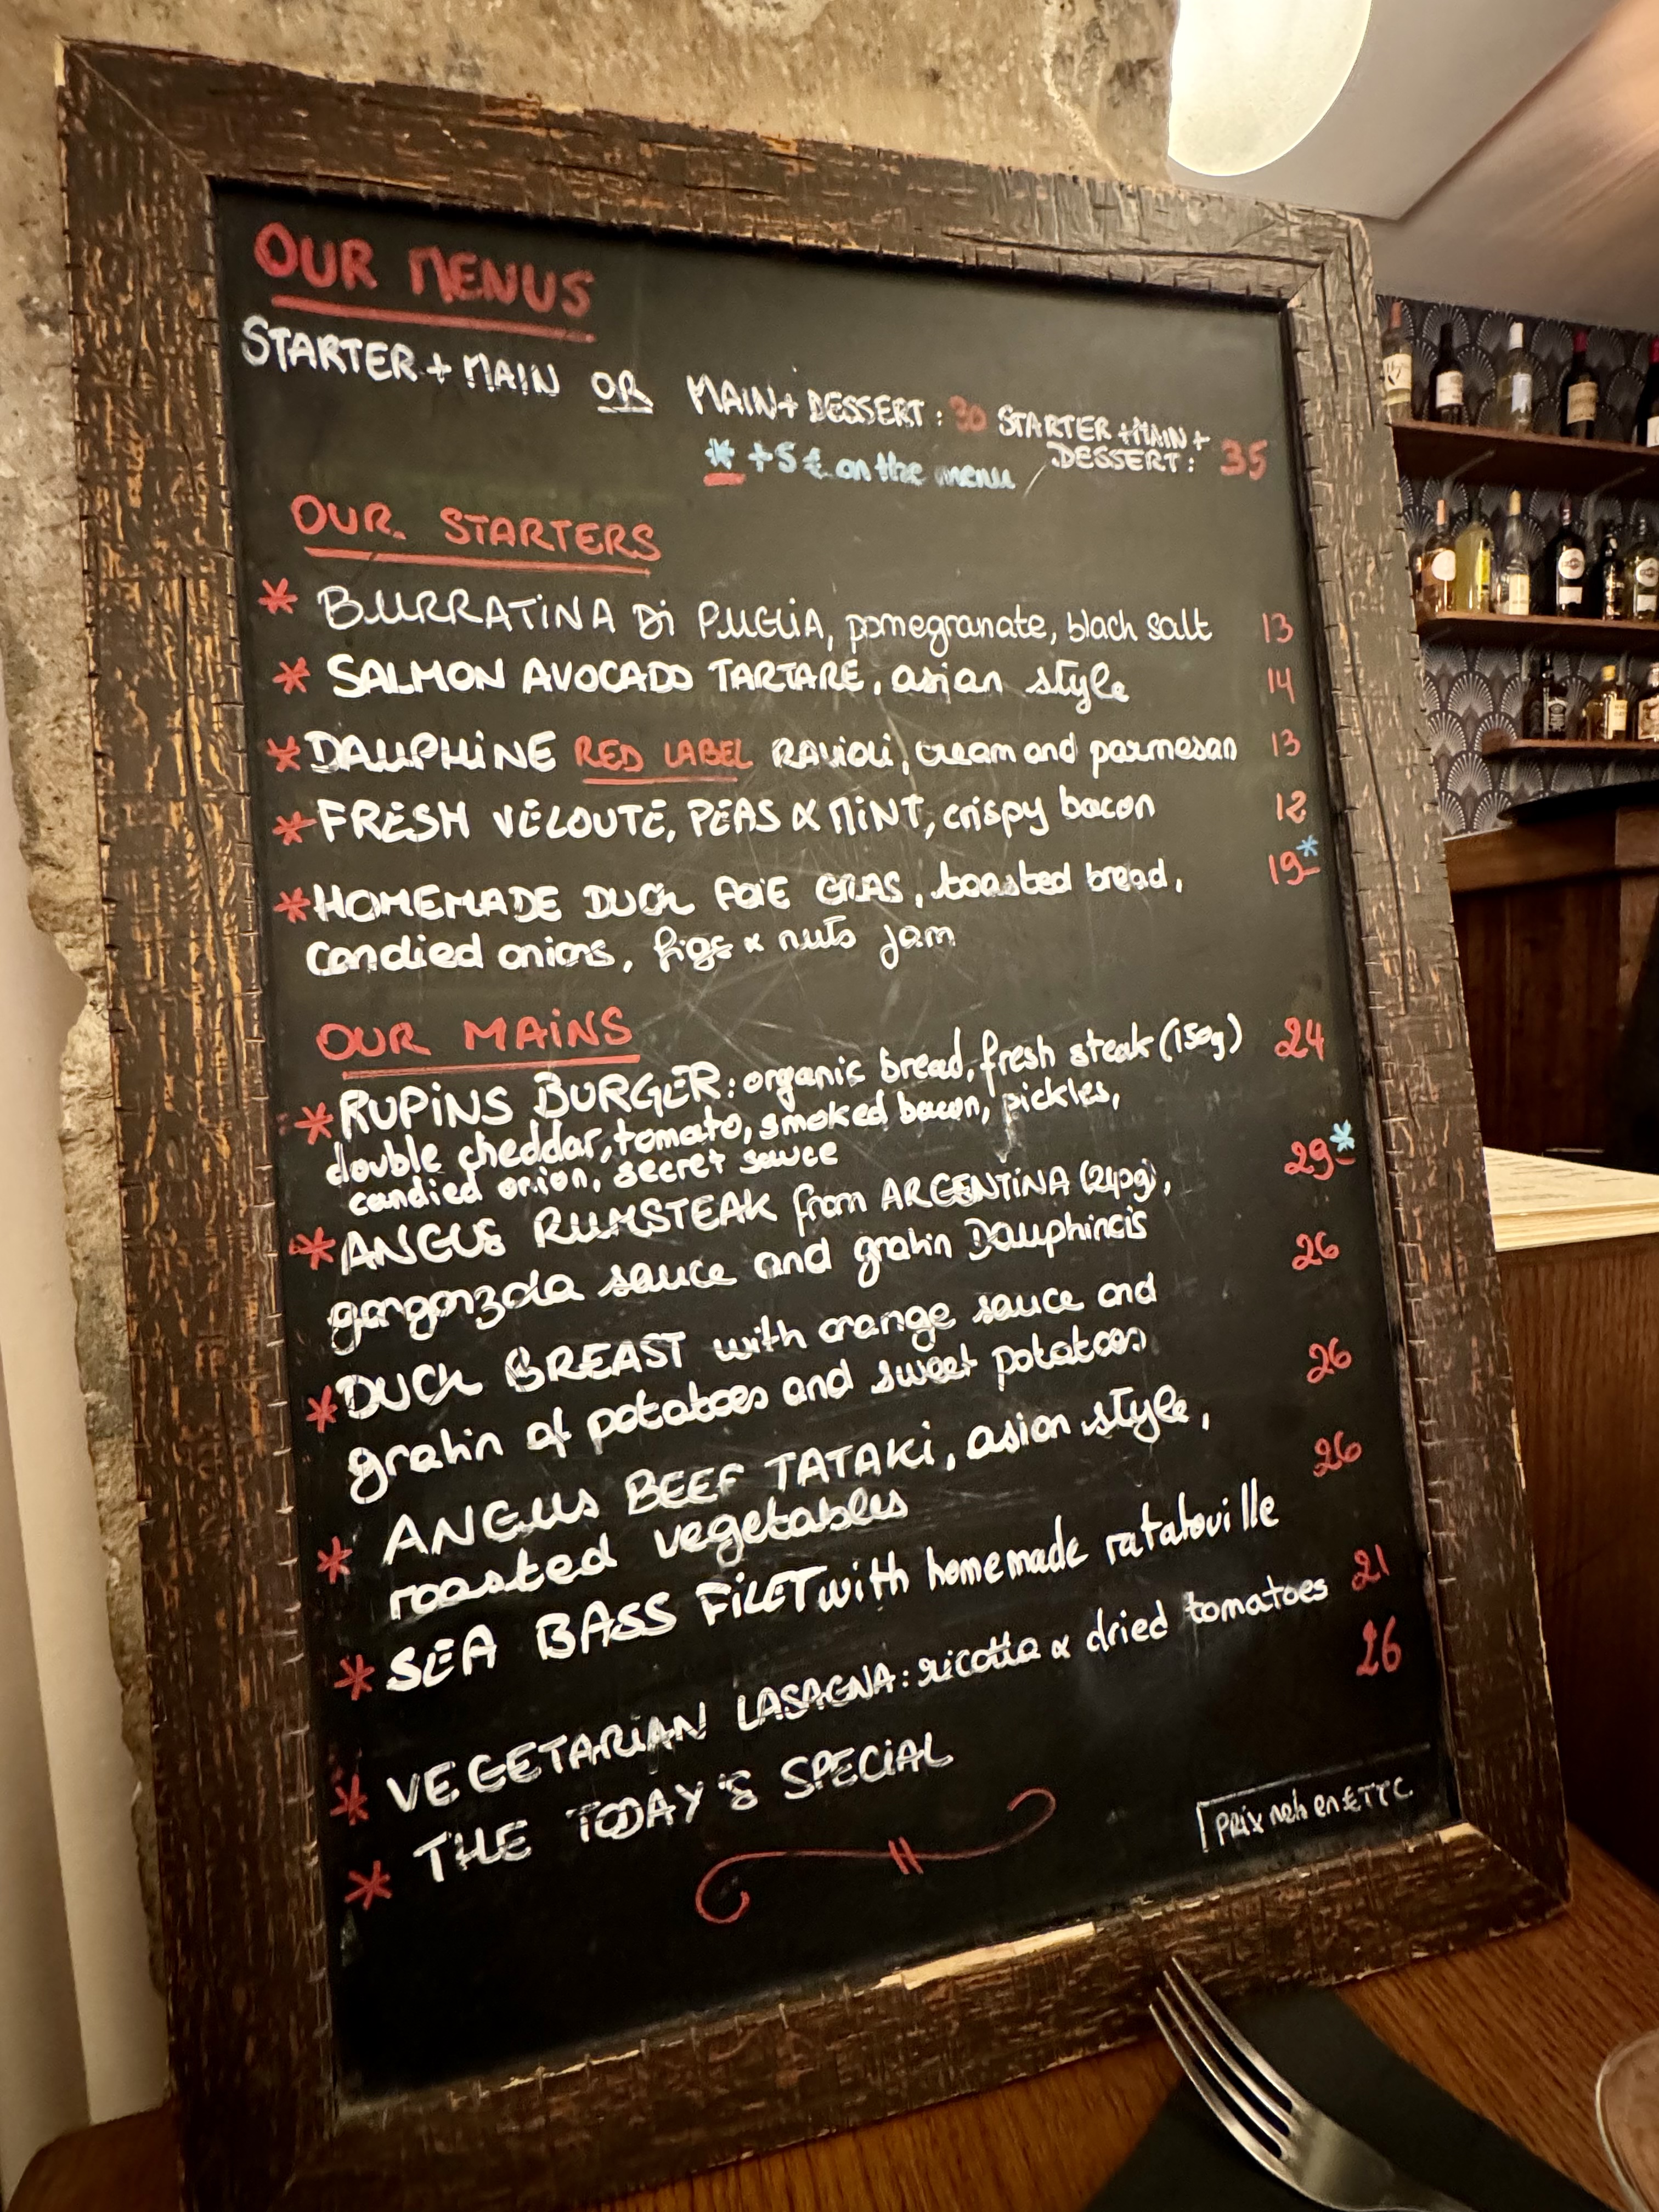 OUR MENUS
STARTER + MAIN OR MAIN + DESSERT : 30 STARTER + MAIN +
DESSERT : 35
* +5€ on the menu
OUR STARTERS
* BURRATINA Di PUGLIA, pomegranate, black salt 13
* SALMON AVOCADO TARTARE, asian style 14
* DAUPHINE RED LABEL RAVIOLI, cream and parmesan 13
* FRESH VELOUTÉ, PEAS & MINT, crispy bacon 12
* HOMEMADE DUCK FOIE GRAS, toasted bread, 19*
candied onions, figs & nuts jam
OUR MAINS
* RUPINS BURGER: organic bread, fresh steak (150g) 24
double cheddar, tomato, smoked bacon, pickles,
candied onion, secret sauce
* ANGUS RUMSTEAK from ARGENTINA (240g), 29*
gorgonzola sauce and gratin Dauphinois
* DUCK BREAST with orange sauce and 26
gratin of potatoes and sweet potatoes
* ANGUS BEEF TATAKI, asian style, 26
roasted vegetables
* SEA BASS FILET with homemade ratatouille 26
* VEGETARIAN LASAGNA: ricotta & dried tomatoes 21
* THE TODAY'S SPECIAL 26
Prix net en € TTC